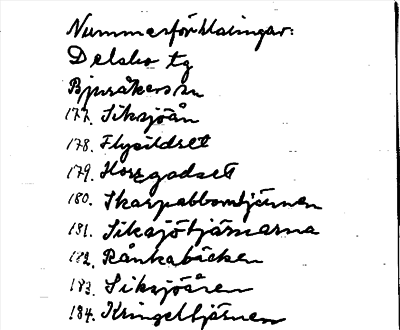 Nummerförklaringar:
Delsbo tg
Bjuråkers sn
177. Siksjöån
178.
179.
180. Skarpabborrtjärnen
181. Siksjötjärnarna
182. Rånkabäcken
183. Siksjöåren
184. Kringeltjärnen